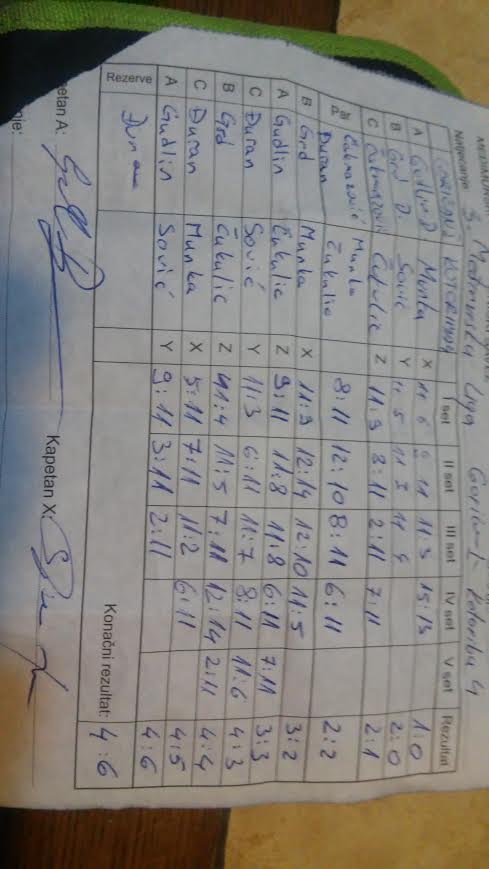 Natjecanje 3. Međimurska liga Goričan - Kotoriba 4
GORIČAN KOTORIBA I set II set III set IV set V set Rezultat
A Gudlin D Munka X 11 6 11 11:5 15:13 1:0
B Grd D. Sović Y 11 5 11 3 11 2:0
C Čakmazović Čukulic Z 11:9 8:11 2:11 7:11 2:1
Čakmazović Munka
Đuran Čukulic 8:11 12:10 8:11 6:11 2:2
B Grd Munka X 11:9 12:14 12:10 11:5 3:2
A Gudlin Čukulic Z 9:11 11:8 11:8 6:11 7:11 3:3
C Đuran Sović Y 11:3 6:11 11:7 8:11 11:6 4:3
B Grd Čukulic Z 11:4 11:5 7:11 12:14 2:11 4:4
C Đuran Munka X 5:11 7:11 11:2 6:11 4:5
A Gudlin Sović Y 9:11 3:11 2:11 4:6
Rezerve Đuran Konačni rezultat: 4:6
petan A: Kapetan X:
nje: